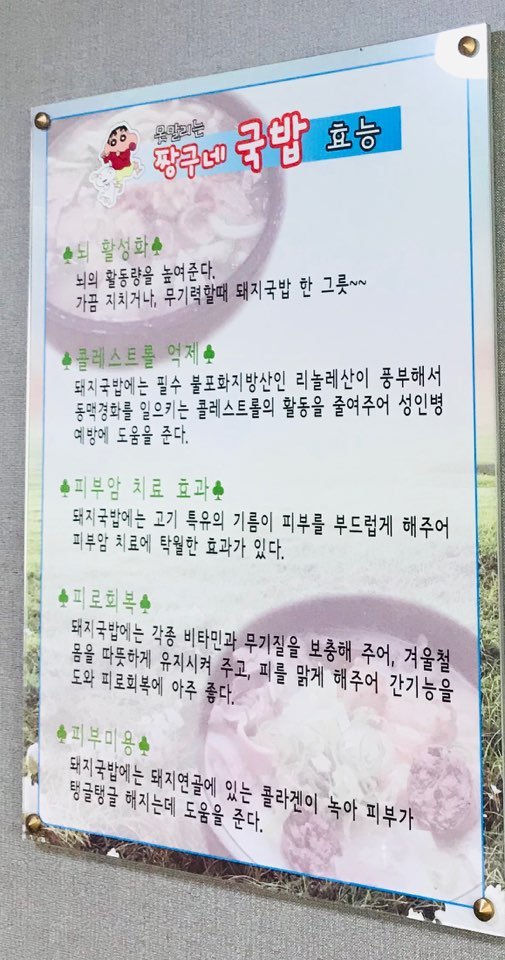 못말리는
짱구네 국밥 효능
♣뇌 활성화♣
뇌의 활동량을 높여준다.
가끔 지치거나, 무기력할때 돼지국밥 한 그릇~~
♣콜레스트롤 억제♣
돼지국밥에는 필수 불포화지방산인 리놀레산이 풍부해서
동맥경화를 일으키는 콜레스트롤의 활동을 줄여주어 성인병
예방에 도움을 준다.
♣피부암 치료 효과♣
돼지국밥에는 고기 특유의 기름이 피부를 부드럽게 해주어
피부암 치료에 탁월한 효과가 있다.
♣피로회복♣
돼지국밥에는 각종 비타민과 무기질을 보충해 주어, 겨울철
몸을 따뜻하게 유지시켜 주고, 피를 맑게 해주어 간기능을
도와 피로회복에 아주 좋다.
♣피부미용♣
돼지국밥에는 돼지연골에 있는 콜라겐이 녹아 피부가
탱글탱글 해지는데 도움을 준다.